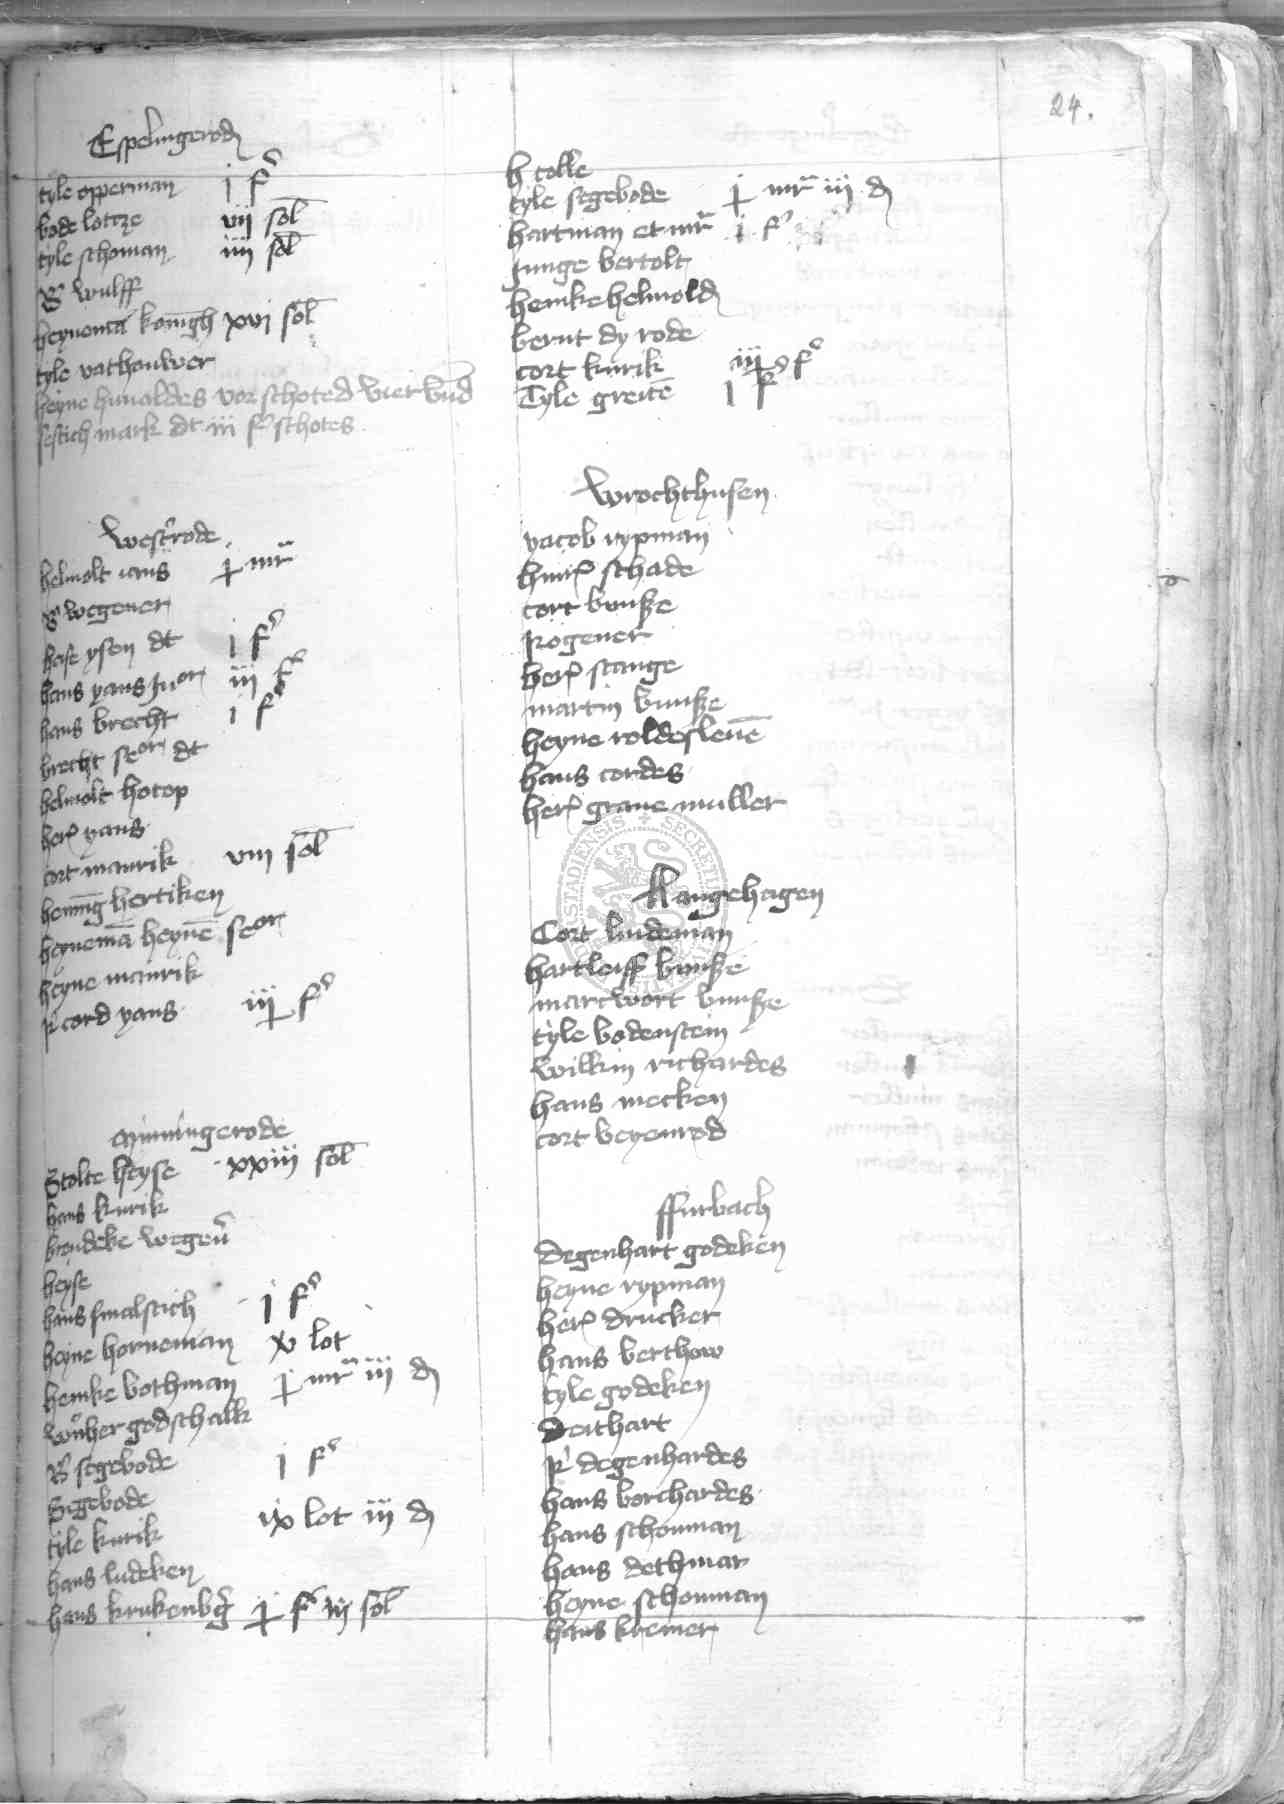 24.
Espelingerod
tyle opperman j f
bode lotze vij sol
tyle schoman iiij sol
B wulff
heynema konigh xvj sol
tyle vathauwer
heyne hunoldes vorschoted vier vnd
sestich mark dt iij f schotes
Westrode
helmolt ians j mr
B wegener
hase ysen dt j f
hans yans Juor iij f
hans brecht j f
brecht seor dt
helmolt hotop
her yans
cort maurik viij sol
hennig hertiken
heynema heyne seor
heyne maurik
cord yans iij f
Mynningerode
Stolte heyse xxiij sol
hans kurik
brendeke wegen
heyse
hans smalstich j f
heyne horneman x lot
henke bothman j mr iij d
godschalk
B segebode j f
Segebode
tyle kurik ix lot iij d
hans ludeken
hans krukenbg j f iij sol
h tolle
tyle segebode j mr iij d
hartman et mr j f
Junge bertolt
henke helmold
bernt dy rode
cort kurik iij f
Tyle greite j f
Wrochthusen
yacob rypman
hinr schade
cort bunsze
Rogener
her stange
martin bunsze
heyne roldesleue
hans cordes
her graue muller
Langehagen
Cort lindeman
hartleiff bunsze
marcwort bunsze
tyle bodenstein
wilkin richardes
hans mecken
cort beyenrod
ffurbach
degenhart godeken
heyne rypman
her drucker
hans berthow
tyle godeken
Deithart
degenhardes
hans borchardes
hans schonman
hans dethmar
heyne schonman
hans kremer